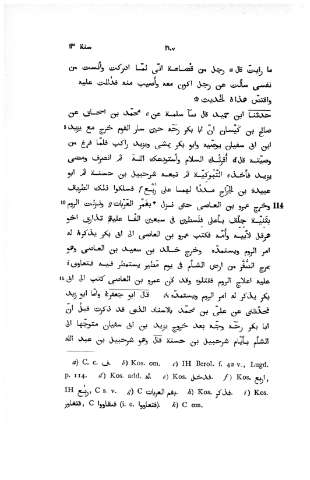 سنة ١٣ ٢١٠٧
ما رايت قال رجل من قضاعة انى لما ادركت وأنست من
نفسى سألت عن رجل اكون معه وأصيب منه فدللت عليه
واقتص هذا الحديث
حدثنا ابن حميد قال سآ سلمة عن محمد بن اسحاق عن
صالح بن كيسان ان ابا بكر رحه حين سار القوم خرج مع يزيد
ابن ابى سفيان يوصيه وابو بكر يمشى ويزيد راكب فلما فرغ من
وصيته قال أقرئك السلام وأستودعك الله ثم انصرف ومضى
يزيد فأخذ التبوكية ثم تبعه شرحبيل بن حسنة ثم ابو
عبيدة بن الجراح مددا لهما على ربع فسلكوا ذلك الطريق
114 وخرج عمرو بن العاصى حتى نزل بغمر العربات ونزلت الروم ١٠
بثنية جلق بأعلى فلسطين فى سبعين الفا عليهم تذارق اخو
هرقل لأبيه وأمه فكتب عمرو بن العاصى الى ابى بكر يذكر له
امر الروم ويستمده وخرج خالد بن سعيد بن العاصى وهو
بمرج الصفر من ارض الشأم فى يوم مطير يستمطر فيه فتعاووا
عليه اعلاج الروم فقتلوه وقد كان عمرو بن العاصى كتب الى ابى ١٥
بكر يذكر له امر الروم ويستمده قال ابو جعفر وأما ابو زيد
فحدثنى عن على بن محمد بالاسناد الذى قد ذكرت قبل ان
ابا بكر رحه وجه بعد خروج يزيد بن ابى سفيان متوجها الى
الشأم بأيام شرحبيل بن حسنة قال وهو شرحبيل بن عبد الله
a) C. c. ف. b) Kos. om. c) IH Berol. f. 42 v., Lugd.
p. 114. d) Kos. add. له. e) Kos. فدخل. f) Kos. اربع,
IH ربع, C s. v. g) C بغمر العربات. h) Kos. فذكر. i) Kos.
فتغاور, C فتقاووا (i. e. فتعاووا). k) C om.